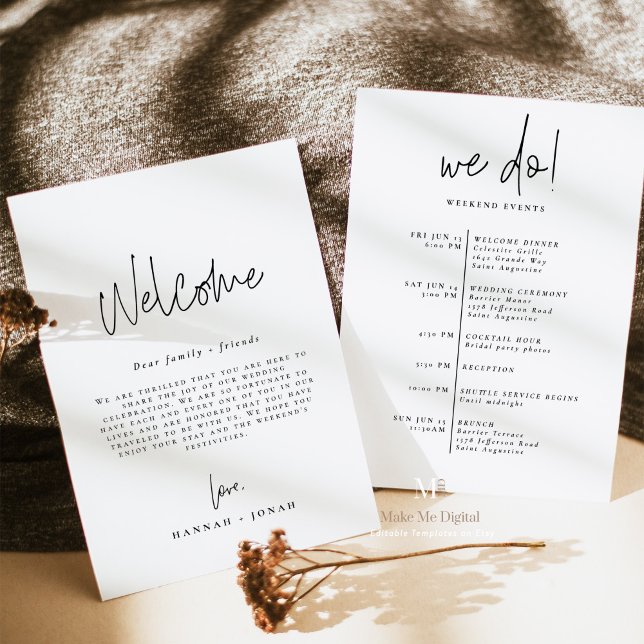 Welcome
Dear family + friends
WE ARE THRILLED THAT YOU ARE HERE TO
SHARE THE JOY OF OUR WEDDING
CELEBRATION. WE ARE SO FORTUNATE TO
HAVE EACH AND EVERY ONE OF YOU IN OUR
LIVES AND ARE HONORED THAT YOU HAVE
TRAVELED TO BE WITH US. WE HOPE YOU
ENJOY YOUR STAY AND THE WEEKEND'S
FESTIVITIES.
love,
HANNAH + JONAH
we do!
WEEKEND EVENTS
FRI JUN 13 WELCOME DINNER
6:00 PM Celestite Grille
1642 Grande Way
Saint Augustine
SAT JUN 14 WEDDING CEREMONY
3:00 PM Barrier Manor
1578 Jefferson Road
Saint Augustine
4:30 PM COCKTAIL HOUR
Bridal party photos
5:30 PM RECEPTION
10:00 PM SHUTTLE SERVICE BEGINS
Until midnight
SUN JUN 15 BRUNCH
11:30AM Barrier Terrace
1578 Jefferson Road
Saint Augustine
MD
Make Me Digital
Editable Templates on Etsy